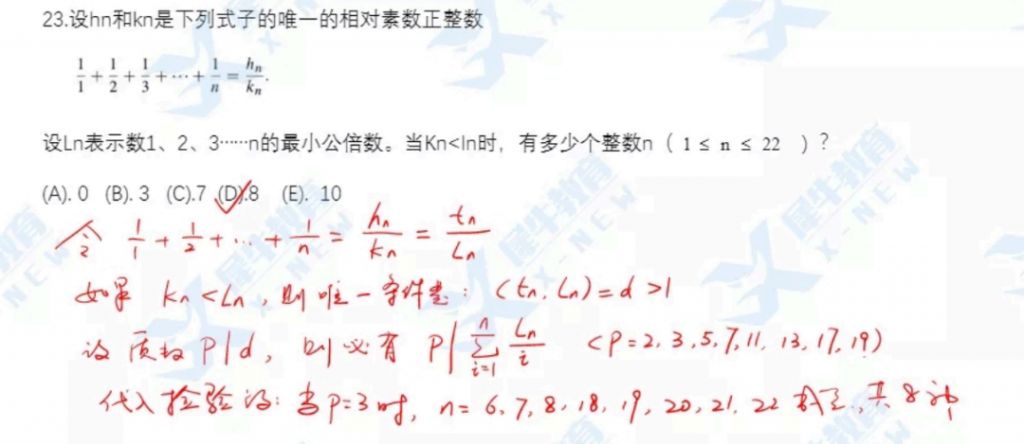 23.设hn和kn是下列式子的唯一的相对素数正整数
1/1 + 1/2 + 1/3 + ⋯ + 1/n = hₙ/kₙ.
设Ln表示数1、2、3……n的最小公倍数。当Kn<ln时，有多少个整数n（1 ≤ n ≤ 22 ）?
(A). 0 (B). 3 (C).7 (D).8 (E). 10
令 1/1 + 1/2 + ... + 1/n = hn/kn = tn/Ln
如果 kn<Ln, 则唯一条件是: (tn, Ln)=d >1
设质数 P|d, 则必有 P|∑ⁿᵢ₌₁ Ln/i (P=2, 3, 5, 7, 11, 13, 17, 19)
代入检验得: 当P=3时, n= 6, 7, 8, 18, 19, 20, 21, 22 成立, 共8种
犀牛教育
X-NEW